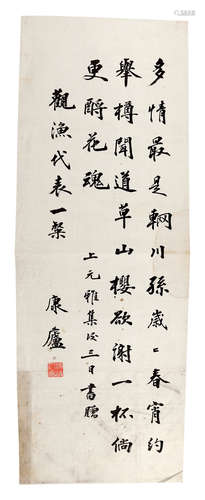 多情最是輞川孫歲〻春宵約
舉樽聞道草山櫻欲謝一杯倘
更酹花魂
上元雅集後三日書贈
觀漁代表一粲
康廬